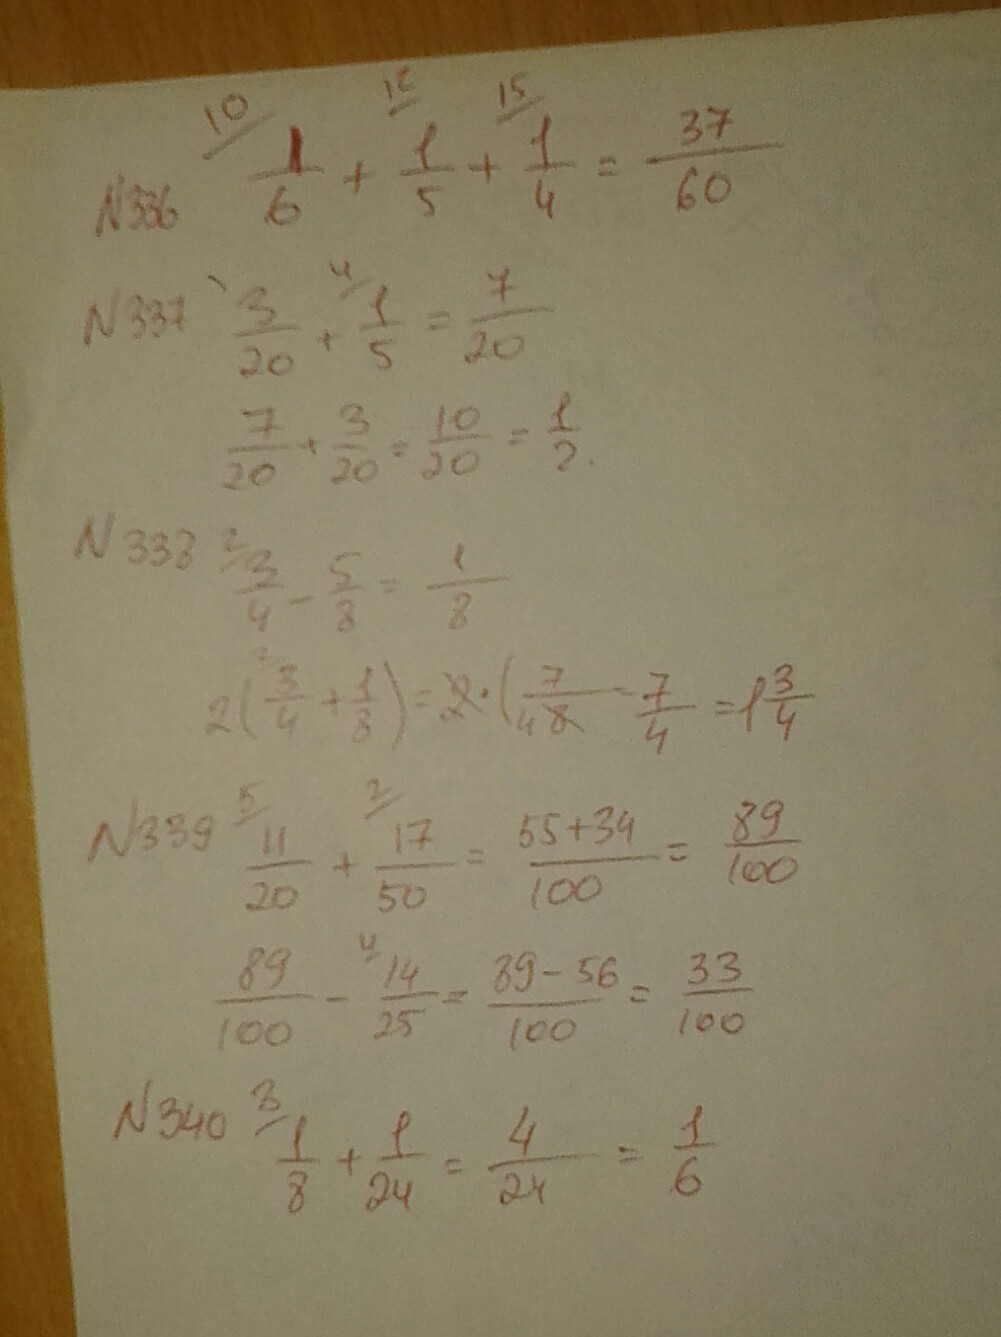 N336 10/ 1/6 + 12/ 1/5 + 15/ 1/4 = 37/60
N337 3/20 + 4/ 1/5 = 7/20
7/20 + 3/20 = 10/20 = 1/2.
N338 2/ 3/4 - 5/8 = 1/8
2(2/ 3/4 + 1/8) = 2·(7/48 - 7/4 = 1 3/4
N339 5/ 11/20 + 2/ 17/50 = 55+34/100 = 89/100
89/100 - 4/ 14/25 = 89-56/100 = 33/100
N340 3/ 1/8 + 1/24 = 4/24 = 1/6